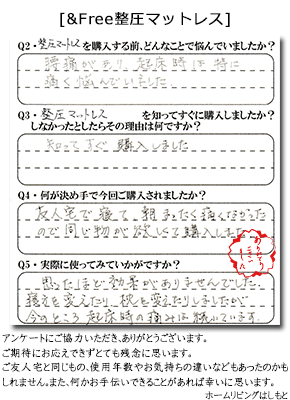 [&Free整圧マットレス]
Q2・整圧マットレスを購入する前、どんなことで悩んでいましたか？
腰痛があり、起床時は特に
痛く悩んでいました
Q3・整圧マットレスを知ってすぐに購入しましたか？
しなかったとしたらその理由は何ですか？
知ってすぐ購入しました
Q4・何が決め手で今回ご購入されましたか？
友人宅で寝て朝まったく痛くなかった
ので同じ物が欲しくて購入した
Q5・実際に使ってみていかがですか？
思ったほど効果がありませんでした。
寝方を変えたり枕を変えたりしましたが
今のところ起床時の痛みは続いています。
アンケートにご協力いただき、ありがとうございます。
ご期待にお応えできずとても残念に思います。
ご友人宅と同じもの、使用年数やお気持ちの違いなどもあったのかも
しれません。また、何かお手伝いできることがあれば幸いに思います。
ホームリビングはしもと